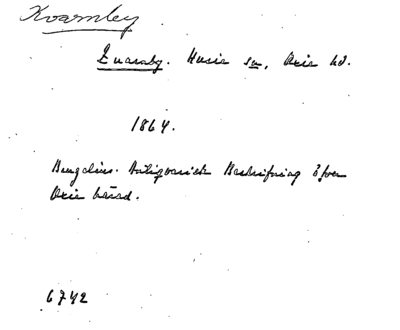 Kvarnley
Enaraby. Husie sn, Oxie hd.
1864.
Bengelius. Antiqvarisk Beskrifning öfver
Oxie härad.
6742